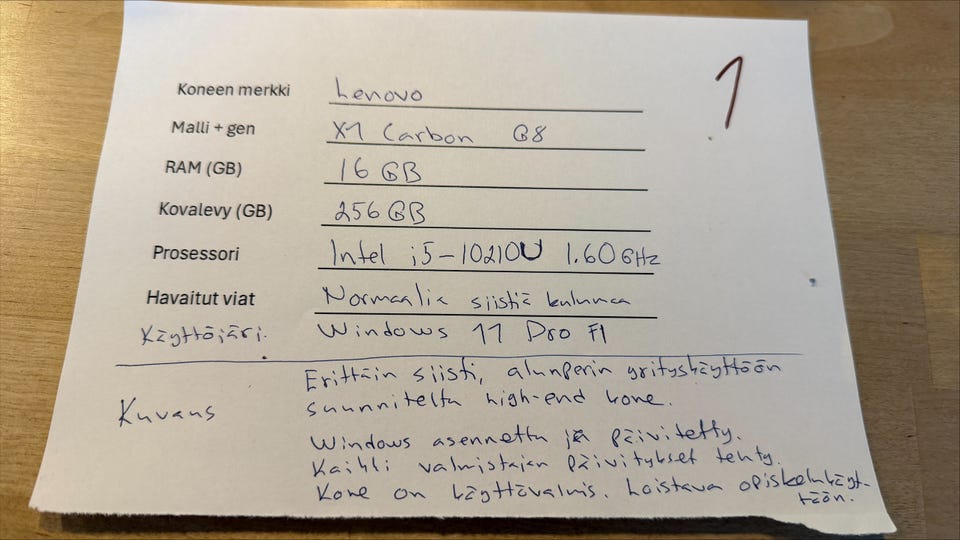 1
Koneen merkki Lenovo
Malli + gen X1 Carbon G8
RAM (GB) 16 GB
Kovalevy (GB) 256 GB
Prosessori Intel i5-10210U 1.60 GHz
Havaitut viat Normaalia siistiä kulumaa
Käyttöjärj. Windows 11 Pro FI
Erittäin siisti, alunperin yrityskäyttöön
Kuvaus suunniteltu high-end kone.
Windows asennettu ja päivitetty.
Kaikki valmistajan päivitykset tehty.
Kone on käyttövalmis. Loistava opiskelukäyt-
töön.